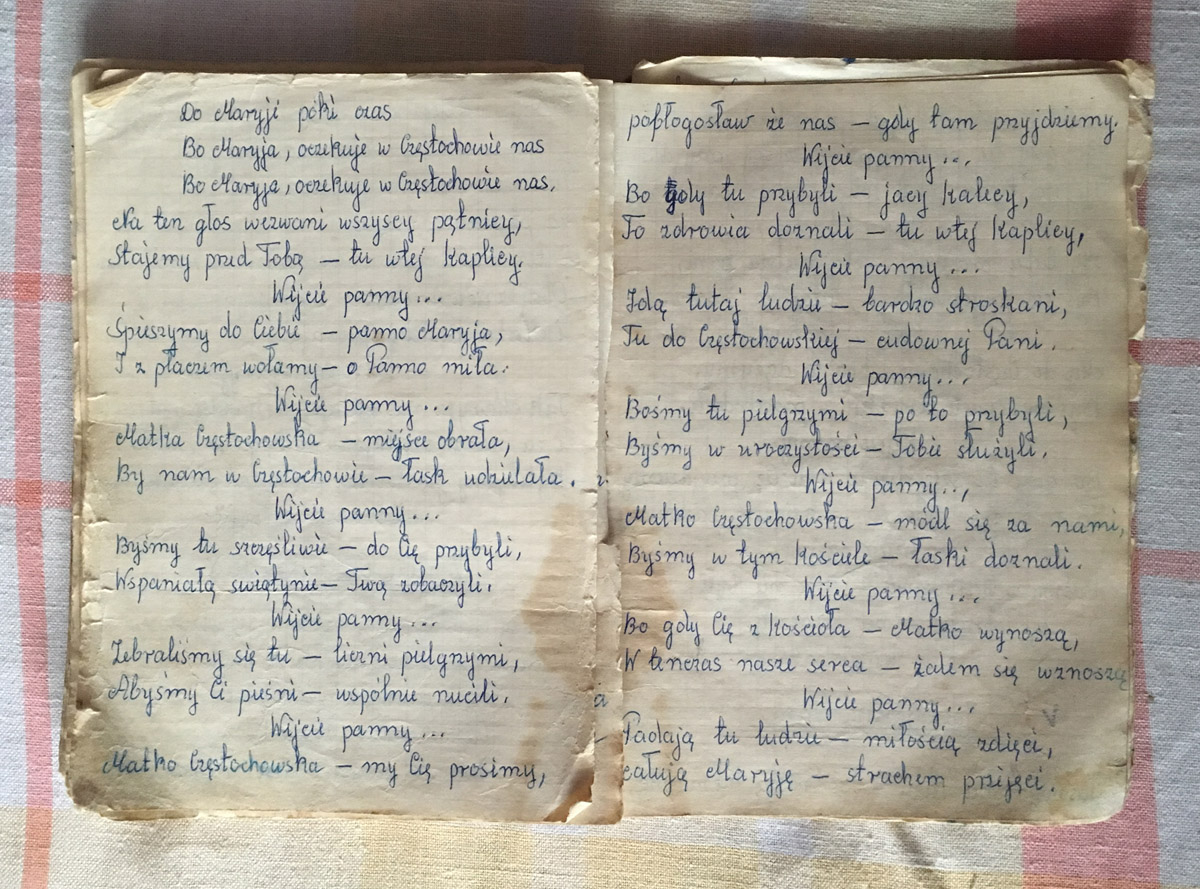 Do Maryji póki czas
Bo Maryja, oczekuje w Częstochowie nas
Bo Maryja, oczekuje w Częstochowie nas.
Na ten głos wezwani wszyscy pątnicy,
Stajemy przed Tobą – tu wtej kaplicy.
Wijcie panny...
Śpieszymy do Ciebie – panno Maryja,
I z płaczem wołamy – o Panno miła.
Wijcie panny...
Matka Częstochowska – miejsce obrała,
By nam w Częstochowie – łask udzielała.
Wijcie panny...
Byśmy tu szczęśliwie – do Cię przybyli,
Wspaniałą swiątynie – Twą zobaczyli.
Wijcie panny...
Zebraliśmy się tu – liczni pielgrzymi,
Abyśmy Ci pieśni – wspólnie nucili.
Wijcie panny...
Matko Częstochowska – my Cię prosimy,
pobłogosław że nas – gdy tam przyjdziemy.
Wijcie panny...
Bo gdy tu przybyli – jacy kalecy,
To zdrowia doznali – tu wtej kaplicy,
Wijcie panny...
Idą tutaj ludzie – bardzo stroskani,
Tu do Częstochowskiej – cudownej Pani.
Wijcie panny...
Bośmy tu pielgrzymi – po to przybyli,
Byśmy w uroczystości – Tobie służyli.
Wijcie panny...
Matko Częstochowska – módl się za nami,
Byśmy w tym kościele – łaski doznali.
Wijcie panny...
Bo gdy Cię z kościoła – Matko wynoszą,
W tenczas nasze serca – żalem się wznoszą
Wijcie panny...
Padają tu ludzie – miłością zdięci,
całują Maryję – strachem przijęci.